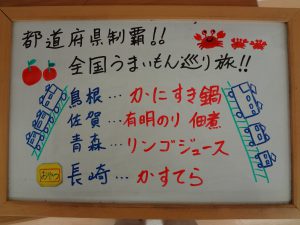 都道府県制覇!!
全国うまいもん巡り旅!!
島根…かにすき鍋
佐賀…有明のり 佃煮
青森…リンゴジュース
おやつ 長崎…かすてら